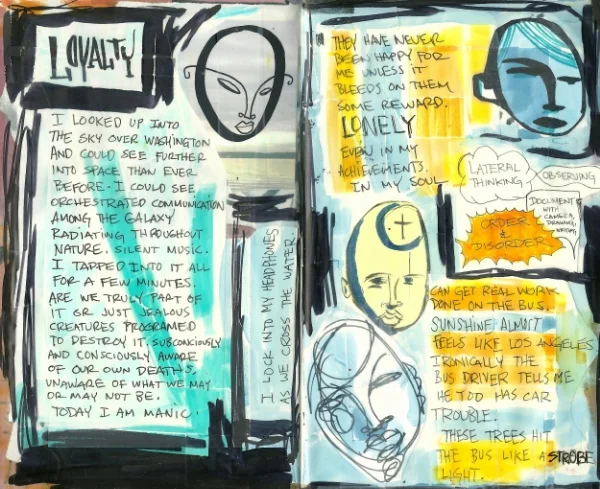 LOYALTY
I LOOKED UP INTO
THE SKY OVER WASHINGTON
AND COULD SEE FURTHER
INTO SPACE THAN EVER
BEFORE. I COULD SEE
ORCHESTRATED COMMUNICATION
AMONG THE GALAXY
RADIATING THROUGHOUT
NATURE. SILENT MUSIC.
I TAPPED INTO IT ALL
FOR A FEW MINUTES.
ARE WE TRULY PART OF
IT OR JUST JEALOUS
CREATURES PROGRAMED
TO DESTROY IT. SUBCONCIOUSLY
AND CONSCIOUSLY AWARE
OF OUR OWN DEATHS.
UNAWARE OF WHAT WE MAY
OR MAY NOT BE.
TODAY I AM MANIC.
I LOCK INTO MY HEADPHONES
AS WE CROSS THE WATER
THEY HAVE NEVER
BEEN HAPPY FOR
ME UNLESS IT
BLEEDS ON THEM
SOME REWARD.
LONELY
EVEN IN MY
ACHIEVEMENTS.
IN MY SOUL
LATERAL
THINKING
OBSERVING
DOCUMENT
WITH
CAMERA,
DRAWING,
WRITING
ORDER
&
DISORDER
CAN GET REAL WORK
DONE ON THE BUS.
SUNSHINE ALMOST
FEELS LIKE LOS ANGELES
IRONICALLY THE
BUS DRIVER TELLS ME
HE TOO HAS CAR
TROUBLE.
THESE TREES HIT
THE BUS LIKE A STROBE
LIGHT.